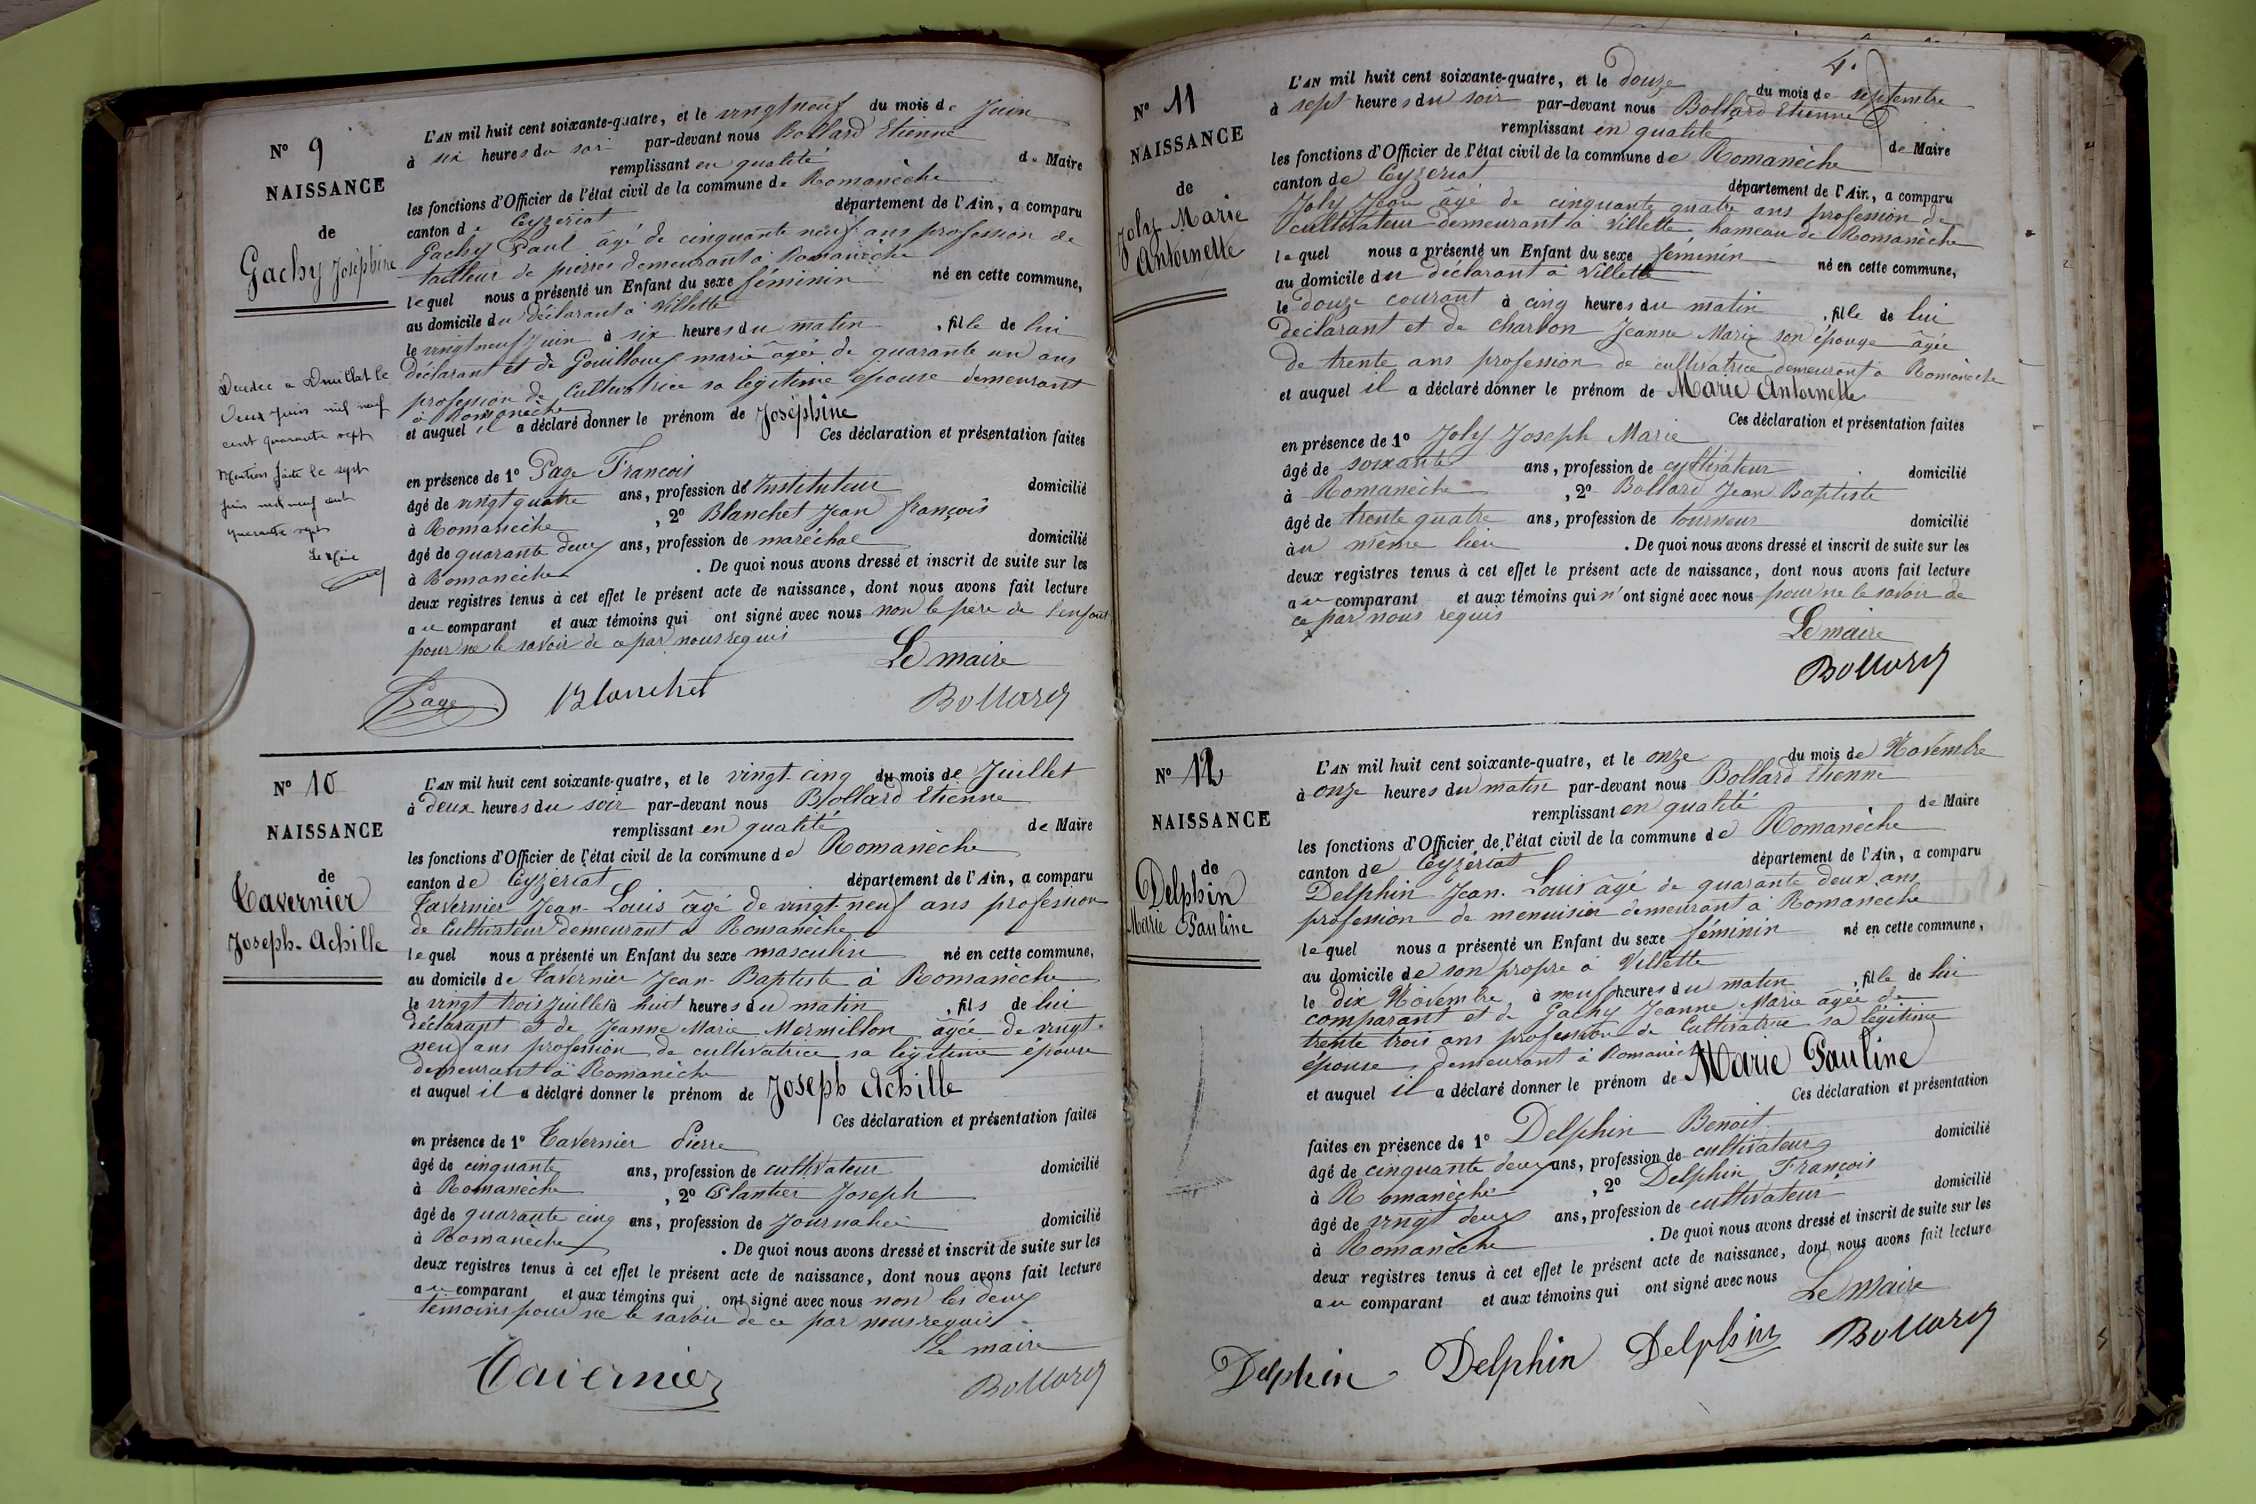 N° 9
NAISSANCE
de
Gachy Joséphine
Décédée a Druillat le
deux juin mil neuf
cent quarante sept
Mention faite le sept
juin mil neuf cent
quarante sept
L'AN mil huit cent soixante-quatre, et le vingt neuf du mois de Juin
à six heures du soir par-devant nous Bollard Etienne
remplissant en qualité de Maire
les fonctions d'Officier de l'état civil de la commune de Romanèche
canton de Ceyzeriat département de l'Ain, a comparu
Gachy Paul âgé de cinquante neuf ans profession de
tailleur de pierres demeurant à Romanèche
lequel nous a présenté un Enfant du sexe féminin né en cette commune,
au domicile du déclarant à Villette
le vingt neuf Juin à six heures du matin, fille de lui
déclarant et de Gouilloux marie âgée de quarante un ans
profession de Cultivatrice sa légitime épouse demeurant
à Romanèche
et auquel il a déclaré donner le prénom de Joséphine
Ces déclaration et présentation faites
en présence de 1° Page François
âgé de vingt quatre ans, profession de Instituteur domicilié
à Romanèche, 2° Blanchet Jean françois
âgé de quarante deux ans, profession de maréchal domicilié
à Romanèche. De quoi nous avons dressé et inscrit de suite sur les
deux registres tenus à cet effet le présent acte de naissance, dont nous avons fait lecture
au comparant et aux témoins qui ont signé avec nous non le père de l'enfant
pour ne le savoir de ce par nous requis
Le maire
Page Blanchet Bollard
N° 10
NAISSANCE
de
Tavernier
Joseph-Achille
L'AN mil huit cent soixante-quatre, et le vingt-cinq du mois de Juillet
à deux heures du soir par-devant nous Bollard Etienne
remplissant en qualité de Maire
les fonctions d'Officier de l'état civil de la commune de Romanèche
canton de Ceyzeriat département de l'Ain, a comparu
Tavernier Jean-Louis âgé de vingt-neuf ans profession
de cultivateur demeurant à Romanèche
lequel nous a présenté un Enfant du sexe masculin né en cette commune,
au domicile de Tavernier Jean-Baptiste à Romanèche
le vingt trois juillet à huit heures du matin, fils de lui
déclarant et de Jeanne Marie Mermillon âgée de vingt-
neuf ans profession de cultivatrice sa légitime épouse
demeurant à Romanèche
et auquel il a déclaré donner le prénom de Joseph Achille
Ces déclaration et présentation faites
en présence de 1° Tavernier Pierre
âgé de cinquante ans, profession de cultivateur domicilié
à Romanèche, 2° Plantier Joseph
âgé de quarante cinq ans, profession de Journalier domicilié
à Romanèche. De quoi nous avons dressé et inscrit de suite sur les
deux registres tenus à cet effet le présent acte de naissance, dont nous avons fait lecture
au comparant et aux témoins qui ont signé avec nous non les deux
témoins pour ne le savoir de ce par nous requis
Le maire
Tavernier Bollard
4.
N° 11
NAISSANCE
de
Joly Marie
Antoinette
L'AN mil huit cent soixante-quatre, et le douze du mois de septembre
à sept heures du soir par-devant nous Bollard Etienne
remplissant en qualité de Maire
les fonctions d'Officier de l'état civil de la commune de Romanèche
canton de Ceyzeriat département de l'Ain, a comparu
Joly Jean âgé de cinquante quatre ans profession de
cultivateur demeurant à Villette hameau de Romanèche
lequel nous a présenté un Enfant du sexe féminin né en cette commune,
au domicile du déclarant à Villette
le douze courant à cinq heures du matin, fille de lui
déclarant et de Charbon Jeanne Marie son épouse âgée
de trente ans profession de cultivatrice demeurant à Romanèche
et auquel il a déclaré donner le prénom de Marie Antoinette
Ces déclaration et présentation faites
en présence de 1° Joly Joseph Marie
âgé de soixante ans, profession de cultivateur domicilié
à Romanèche, 2° Bollard Jean Baptiste
âgé de trente quatre ans, profession de tourneur domicilié
au même lieu. De quoi nous avons dressé et inscrit de suite sur les
deux registres tenus à cet effet le présent acte de naissance, dont nous avons fait lecture
au comparant et aux témoins qui n'ont signé avec nous pour ne le savoir de
ce par nous requis
Le maire
Bollard
N° 12
NAISSANCE
de
Delphin
Marie Pauline
L'AN mil huit cent soixante-quatre, et le onze du mois de Novembre
à onze heures du matin par-devant nous Bollard Etienne
remplissant en qualité de Maire
les fonctions d'Officier de l'état civil de la commune de Romanèche
canton de Ceyzériat département de l'Ain, a comparu
Delphin Jean-Louis âgé de quarante deux ans
profession de menuisier demeurant à Romanèche
lequel nous a présenté un Enfant du sexe féminin né en cette commune,
au domicile de son propre à Villette
le dix Novembre, à neuf heures du matin, fille de lui
comparant et de Gachy Jeanne Marie âgée de
trente trois ans profession de Cultivatrice sa légitime
épouse, demeurant à Romanèche
et auquel il a déclaré donner le prénom de Marie Pauline
Ces déclaration et présentation
faites en présence de 1° Delphin Benoit
âgé de cinquante deux ans, profession de cultivateur domicilié
à Romanèche, 2° Delphin François
âgé de vingt deux ans, profession de cultivateur domicilié
à Romanèche. De quoi nous avons dressé et inscrit de suite sur les
deux registres tenus à cet effet le présent acte de naissance, dont nous avons fait lecture
au comparant et aux témoins qui ont signé avec nous
Le Maire
Delphin Delphin Delphin Bollard